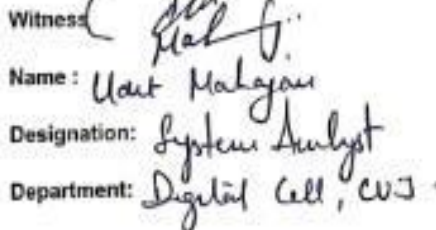 Witness
Name : Udit Mahajan
Designation: System Analyst
Department: Digital Cell, CUJ